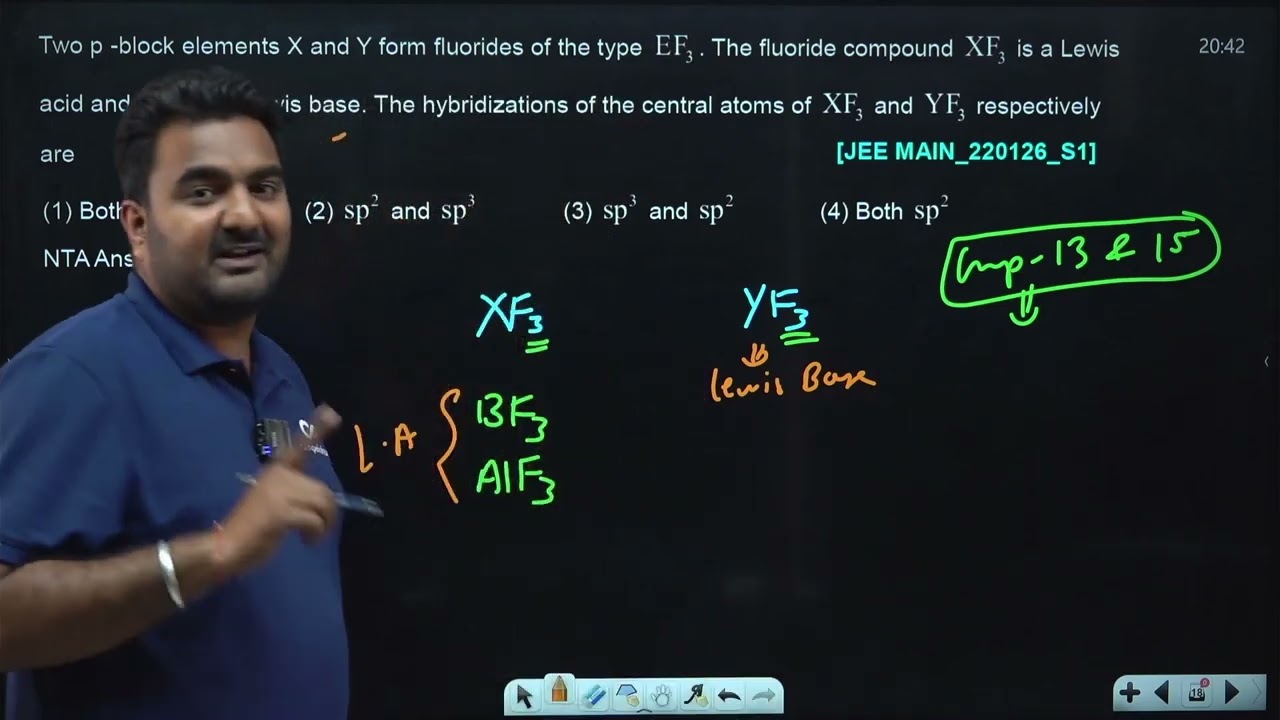 Two p -block elements X and Y form fluorides of the type EF₃. The fluoride compound XF₃ is a Lewis
20:42
acid and vis base. The hybridizations of the central atoms of XF₃ and YF₃ respectively
are
[JEE MAIN_220126_S1]
(1) Both (2) sp² and sp³ (3) sp³ and sp² (4) Both sp²
NTA Ans
Grp-13 & 15
XF₃
YF₃
Lewis Base
L.A
BF₃
AlF₃
18